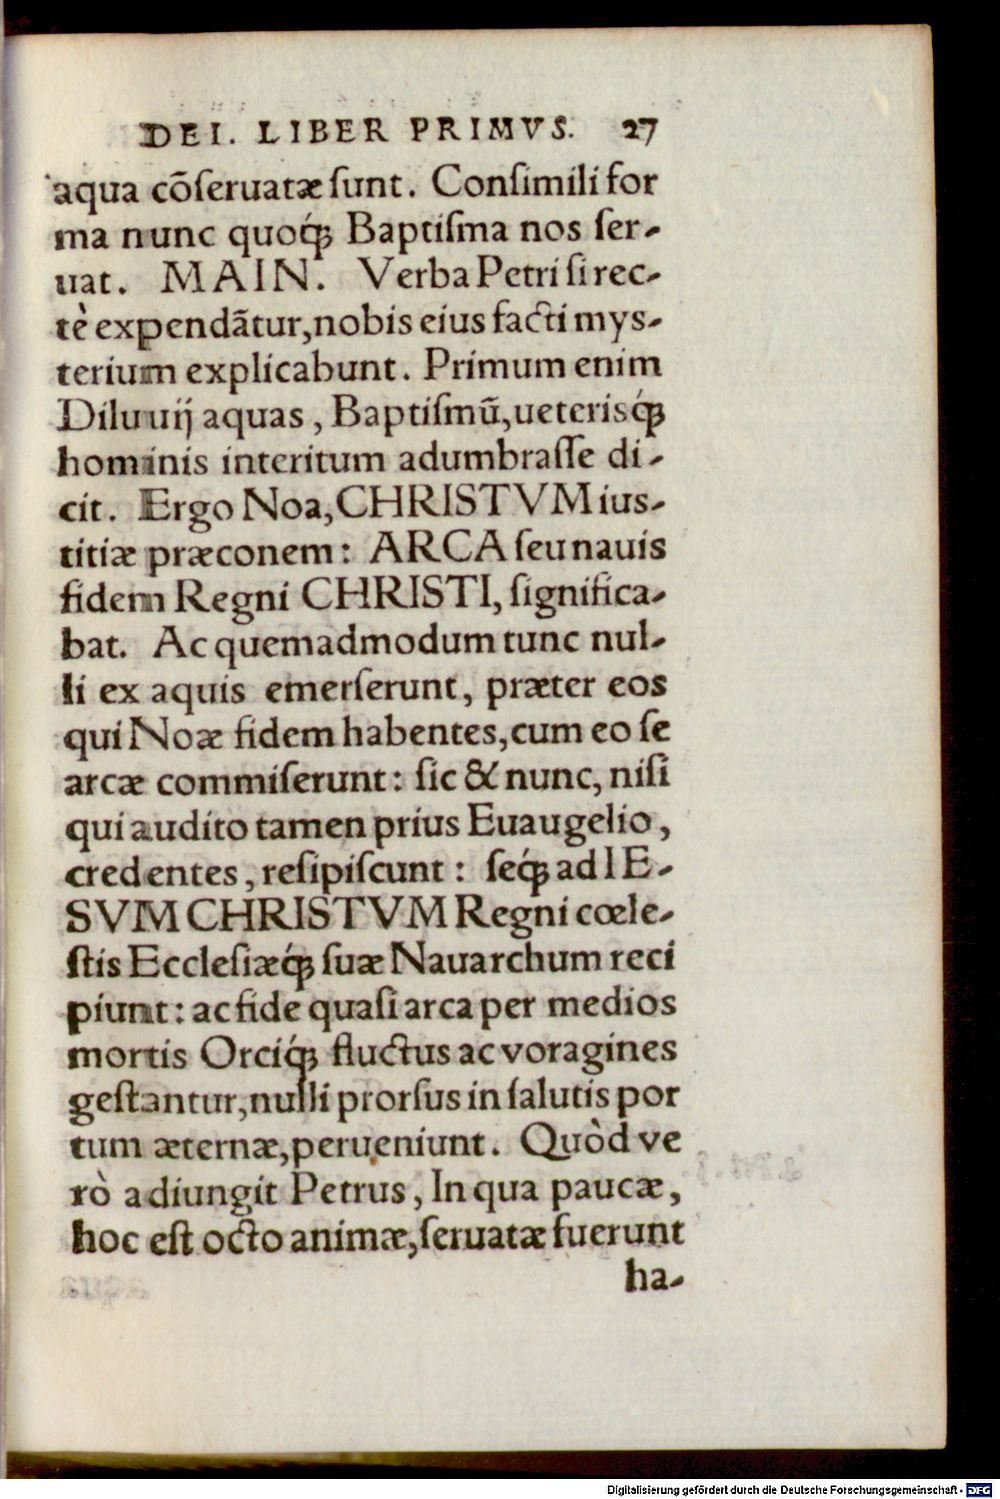 DEI. LIBER PRIMVS. 27
aqua cõſeruatæ ſunt. Conſimili for
ma nunc quoq́; Baptiſma nos ſer-
uat. MAIN. Verba Petri ſi rec-
tè expendãtur, nobis eius facti mys-
terium explicabunt. Primum enim
Diluuij aquas, Baptiſmũ, ueterisq́;
hominis interitum adumbraſſe di-
cit. Ergo Noa, CHRISTVM ius-
titiæ præconem: ARCA ſeu nauis
fidem Regni CHRISTI, ſignifica-
bat. Ac quemadmodum tunc nul-
li ex aquis emerſerunt, præter eos
qui Noæ fidem habentes, cum eo ſe
arcæ commiſerunt: ſic & nunc, niſi
qui audito tamen prius Euaugelio,
credentes, reſipiſcunt: ſeq́; ad IE-
SVM CHRISTVM Regni cœle-
ſtis Eccleſiæq́; ſuæ Nauarchum reci
piunt: ac fide quaſi arca per medios
mortis Orciq́; fluctus ac voragines
geſtantur, nulli prorſus in ſalutis por
tum æternæ, perueniunt. Quòd ve
rò adiungit Petrus, In qua paucæ,
hoc eſt octo animæ, ſeruatæ fuerunt
ha-
Digitalisierung gefördert durch die Deutsche Forschungsgemeinschaft - DFG